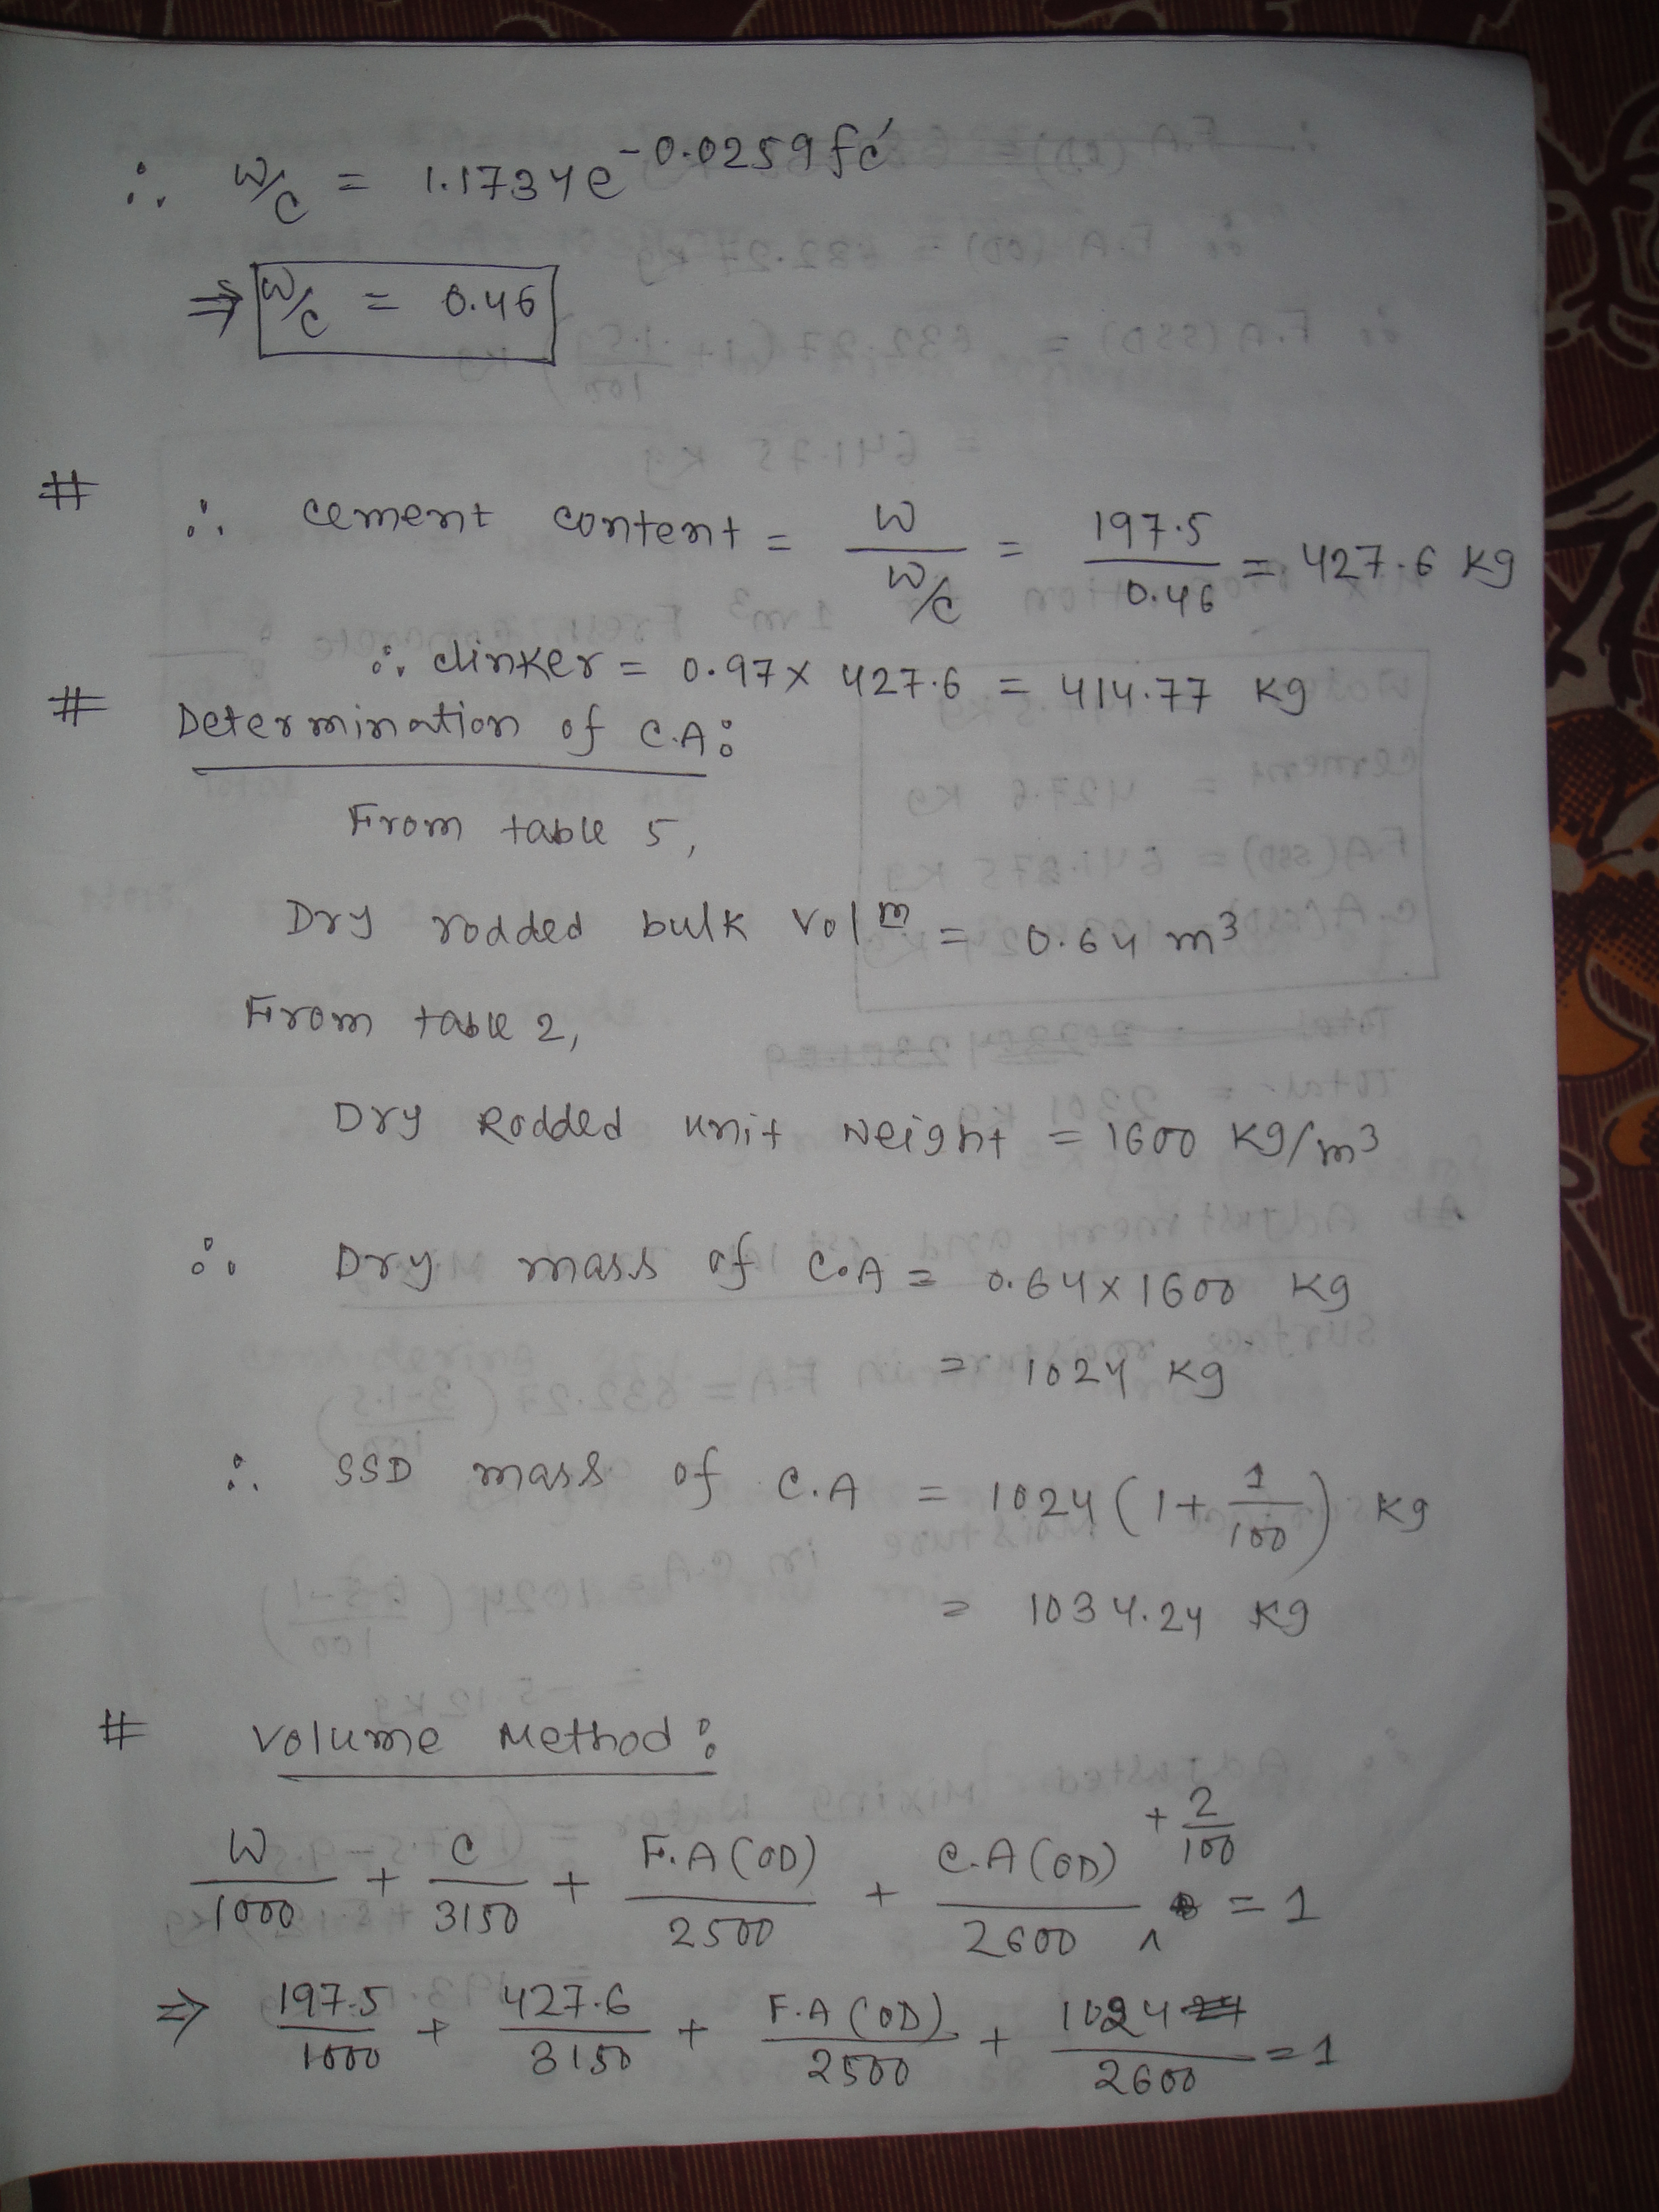 ∴ W/C = 1.1734e^-0.0259fc'
⇒ W/C = 0.46
# ∴ cement content = W / W/C = 197.5 / 0.46 = 427.6 kg
∴ clinker = 0.97 × 427.6 = 414.77 kg
# Determination of C.A:
From table 5,
Dry rodded bulk Vol^m = 0.64 m³
From table 2,
Dry Rodded unit weight = 1600 kg/m³
∴ Dry mass of C.A = 0.64 × 1600 kg
= 1024 kg
∴ SSD mass of C.A = 1024 (1 + 1/100) kg
= 1034.24 kg
# Volume Method:
W/1000 + C/3150 + F.A(OD)/2500 + C.A(OD)/2600 + 2/100 = 1
⇒ 197.5/1000 + 427.6/3150 + F.A(OD)/2500 + 1024/2600 = 1